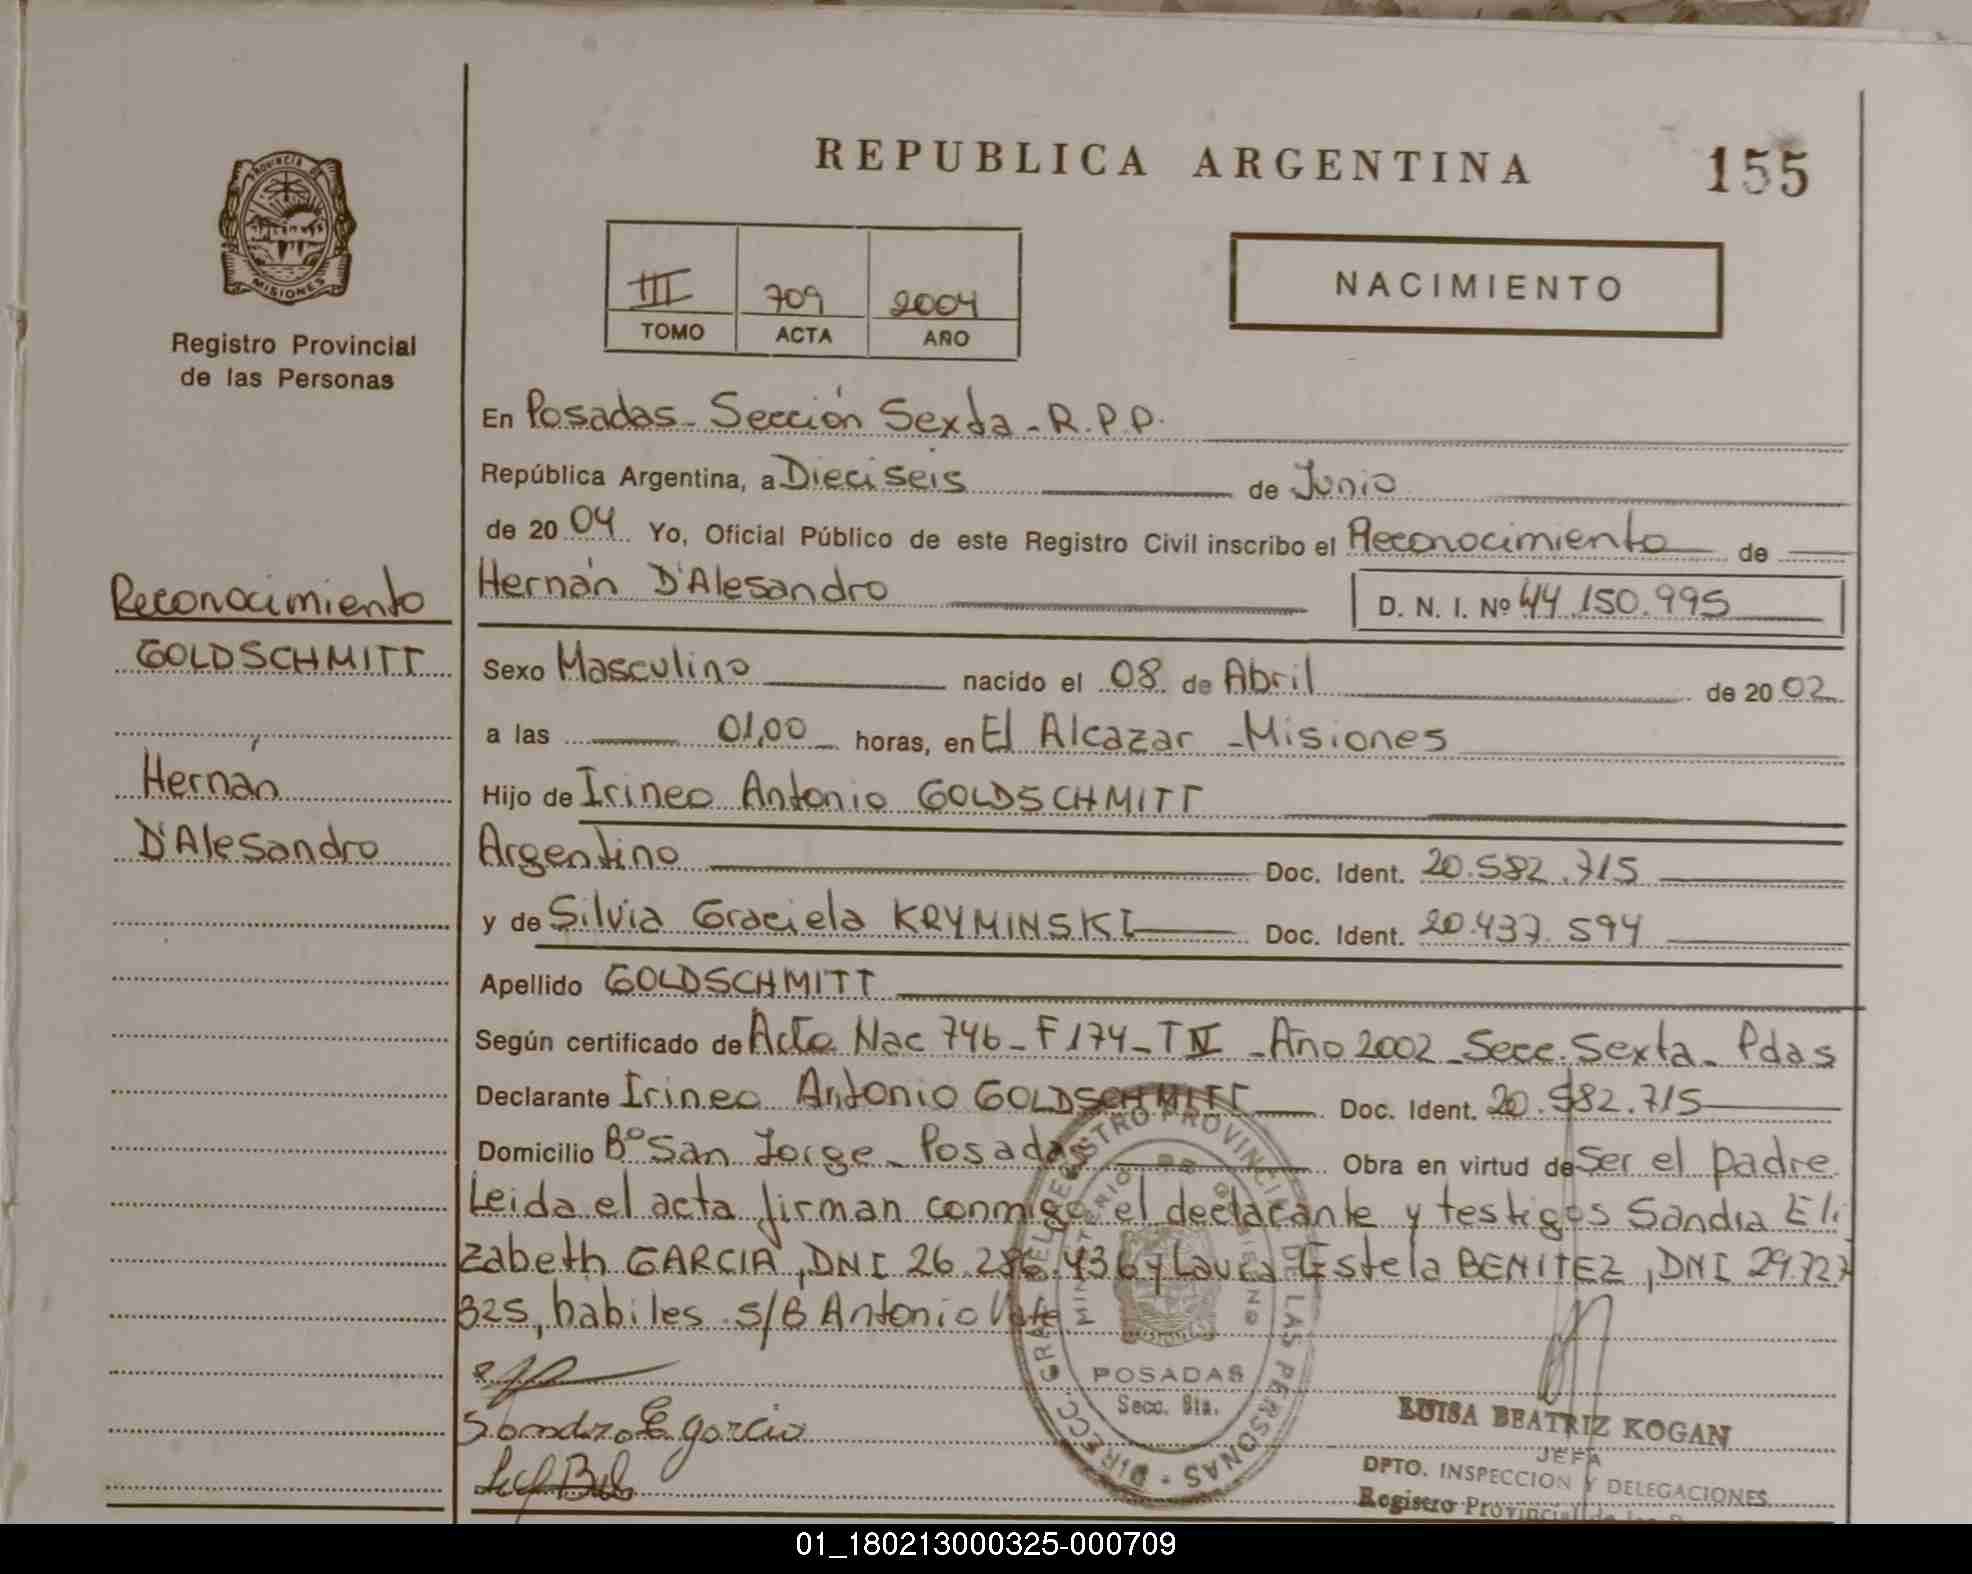 REPUBLICA ARGENTINA
155
PROVINCIA DE
MISIONES
Registro Provincial
de las Personas
III 709 2004
TOMO ACTA AÑO
NACIMIENTO
En Posadas - Sección Sexta - R.P.P.
República Argentina, a Dieciseis de Junio
de 20 04 Yo, Oficial Público de este Registro Civil inscribo el Reconocimiento de
Hernán D'Alesandro D. N. I. Nº 44.150.995
Reconocimiento
GOLDSCHMITT
Hernán
D'Alesandro
Sexo Masculino nacido el 08 de Abril de 20 02
a las 01,00 horas, en El Alcazar - Misiones
Hijo de Irineo Antonio GOLDSCHMITT
Argentino Doc. Ident. 20.582.715
y de Silvia Graciela KRYMINSKI Doc. Ident. 20.437.594
Apellido GOLDSCHMITT
Según certificado de Acta Nac 746 - F 174 - T IV - Año 2002 - Secc. Sexta - Pdas
Declarante Irineo Antonio GOLDSCHMITT Doc. Ident. 20.582.715
Domicilio Bº San Jorge - Posadas Obra en virtud de Ser el padre
Leida el acta firman conmigo el declarante y testigos Sandra Eli
zabeth GARCIA, DNI 26.286.436 y Laura Estela BENITEZ, DNI 29.727
325, habiles s/B Antonio
Sandra E Garcia
DIRECC. GRAL DEL REGISTRO PROVINCIAL DE LAS PERSONAS
MINISTERIO DE GOBIERNO
POSADAS
Secc. 6ta.
LUISA BEATRIZ KOGAN
JEFA
DPTO. INSPECCION Y DELEGACIONES
Registro Provincial de las
01_180213000325-000709